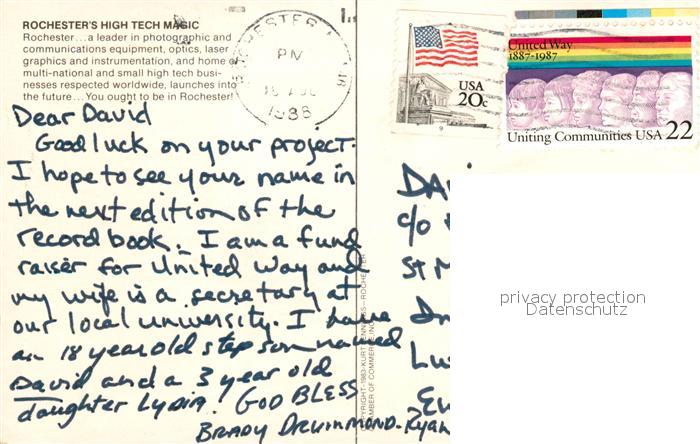 ROCHESTER'S HIGH TECH MAGIC
Rochester...a leader in photographic and
communications equipment, optics, laser
graphics and instrumentation, and home of
multi-national and small high tech busi-
nesses respected worldwide, launches into
the future...You ought to be in Rochester!
ROCHESTER
PM
1988
USA
20c
United Way
1887-1987
Uniting Communities USA 22
Dear David
Good luck on your project.
I hope to see your name in
the next edition of the
record book. I am a fund
raiser for United Way and
my wife is a secretary at
our local university. I have
an 18 year old step son named
David and a 3 year old
daughter Lydia! GOD BLESS
BRADY DRUMMOND-Ryan
CHAMBER OF COMMERCE, INC.
c/o
St M
privacy protection
Datenschutz